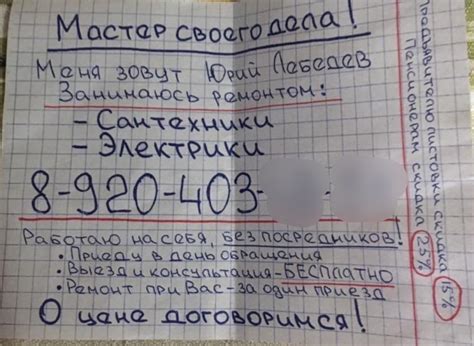 Мастер своего дела!
Меня зовут Юрий Лебедев
Занимаюсь ремонтом:
- Сантехники
- Электрики
8-920-403-
Работаю на себя, без посредников!
• Приеду в день обращения
• Выезд и консультация - БЕСПЛАТНО
• Ремонт при Вас - за один приезд
О цене договоримся!
Предъявителю листовки скидка 15%
Пенсионерам скидка 25%